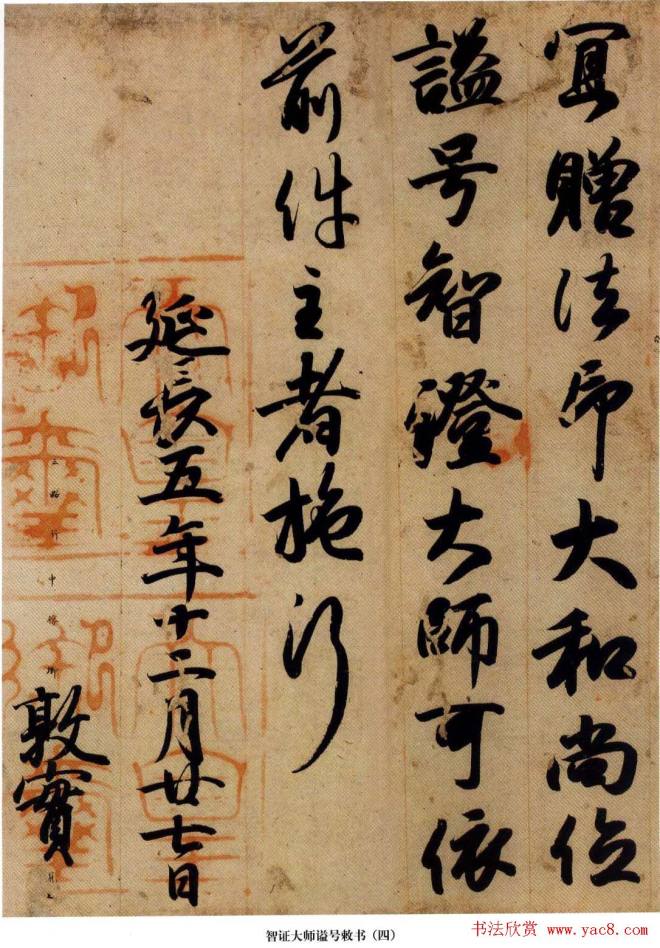 宜贈法印大和尚位
謚号智證大師可依
前件主者施行
延長五年十二月廿七日
敦實
智证大师谥号敕书（四）
书法欣赏 www.yac8.com